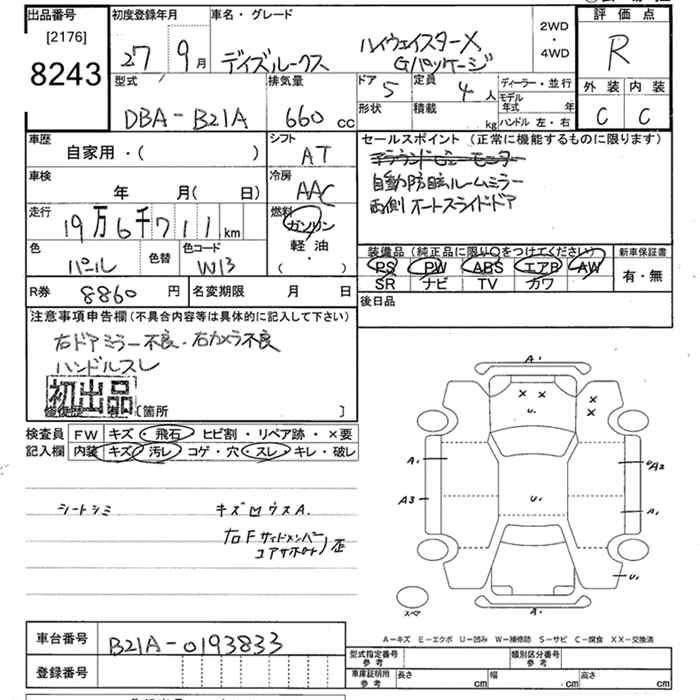 出品番号
[2176]
8243
初度登録年月
27 9月
車名・グレード
デイズルークス
ハイウェイスターX
Gパッケージ
2WD
・
4WD
評価点
R
外装 内装
C C
型式
DBA-B21A
排気量
660 cc
ドア
5
定員
4人
形状
積載
kg
ディーラー・並行
モデル年式 年
ハンドル 左・右
車歴
自家用・( )
シフト
AT
車検
年 月( 日)
冷房
AAC
走行
19万6千711km
燃料
ガソリン
軽・油
( ・ )
色
パール
色替
色コード
W13
R券
8860 円
名変期限 月 日
セールスポイント (正常に機能するものに限ります)
アラウンドビューモニター
自動防眩ルームミラー
両側オートスライドドア
装備品 (純正品に限り○をつけてください)
PS PW ABS エアB AW
SR ナビ TV カワ
新車保証書
有・無
後日品
注意事項申告欄 (不具合内容等は具体的に記入して下さい)
右ドアミラー不良・右カメラ不良
ハンドルスレ
初出品
修復歴 有 [箇所 ]
検査員
記入欄
FW キズ・飛石・ヒビ割・リペア跡・×要
内装 キズ・汚レ・コゲ・穴・スレ・キレ・破レ
シートシミ
キズ凹ウスA.
右Fサイドメンバー
コアサポート)歪
A.
× ×
U.
×
×
A.
U A2
A3
U.
A.
U.
スペア
A.
A-キズ E-エクボ U-凹み W-補修跡 S-サビ C-腐食 XX-交換済
車台番号
B21A-0193833
登録番号
型式指定番号
参考
類別区分番号
参考
車庫証明用
参考
長さ cm
幅 cm
高さ cm